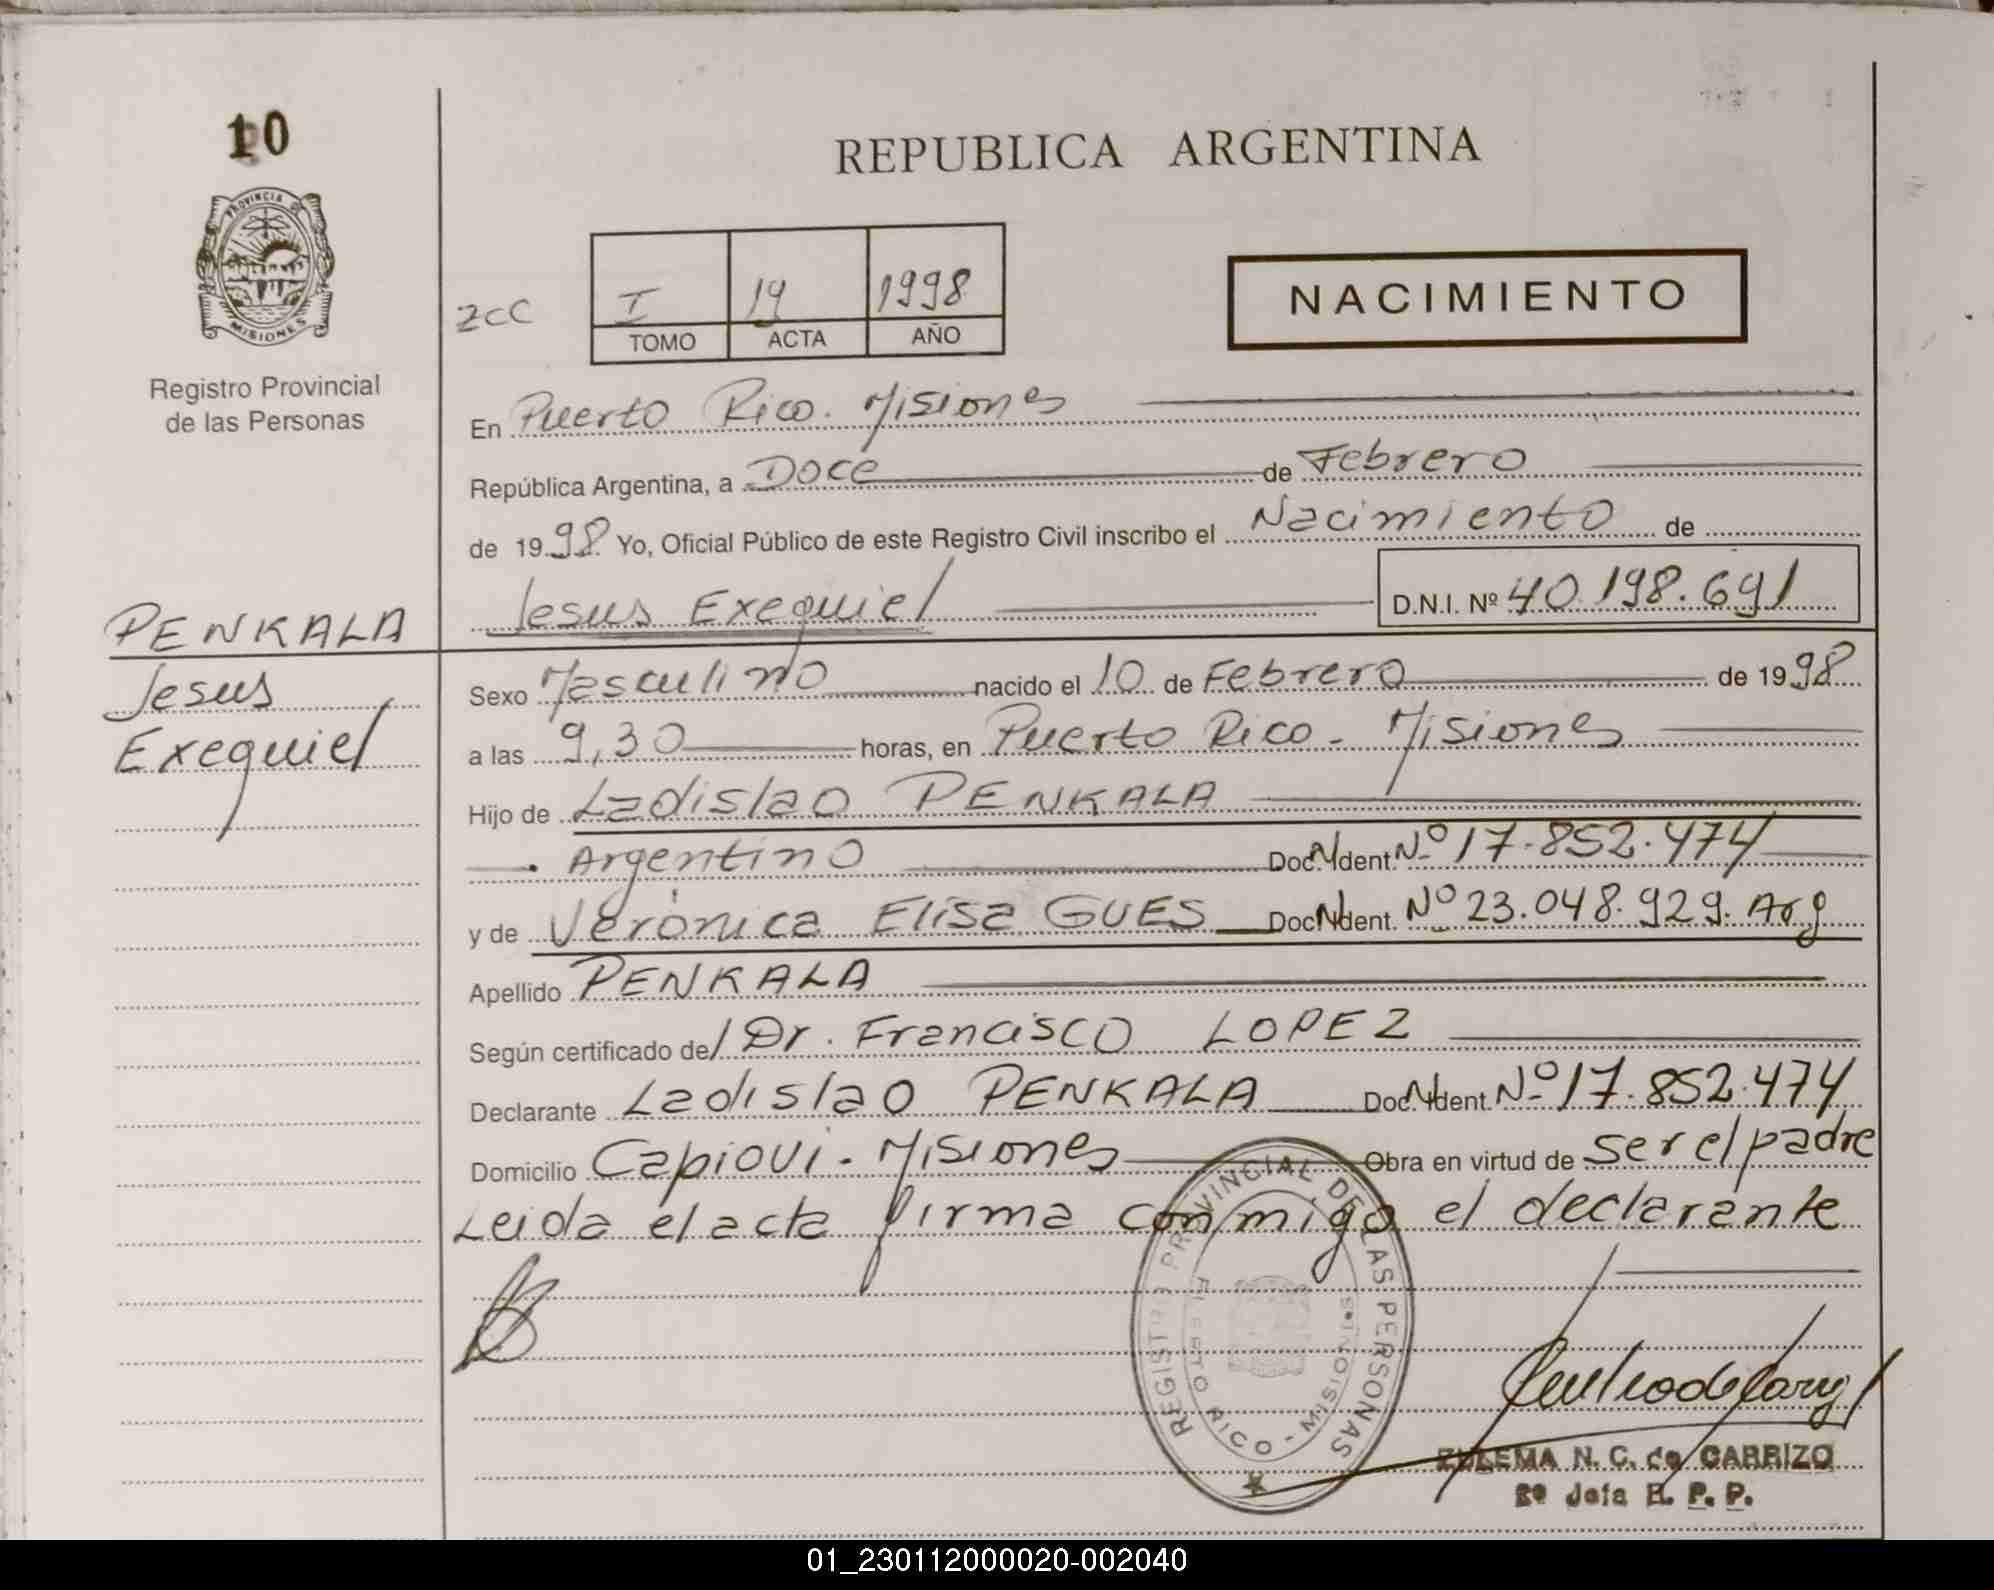 10
REPUBLICA ARGENTINA
PROVINCIA DE
MISIONES
Registro Provincial
de las Personas
ZCC
I 19 1998
TOMO ACTA AÑO
NACIMIENTO
En Puerto Rico. Misiones
República Argentina, a Doce de Febrero
de 1998 Yo, Oficial Público de este Registro Civil inscribo el Nacimiento de
Jesus Exequiel D.N.I. Nº 40.198.691
PENKALA
Jesus
Exequiel
Sexo Masculino nacido el 10 de Febrero de 1998
a las 9,30 horas, en Puerto Rico - Misiones
Hijo de Ladislao PENKALA
Argentino Doc. Ident. Nº 17.852.474
y de Verónica Elisa GUES Doc. Ident. Nº 23.048.929. Arg
Apellido PENKALA
Según certificado del Dr. Francisco LOPEZ
Declarante Ladislao PENKALA Doc. Ident. Nº 17.852.474
Domicilio Capiovi - Misiones Obra en virtud de ser el padre
Leida el acta firma conmigo el declarante
REGISTRO PROVINCIAL DE LAS PERSONAS
PUERTO RICO - MISIONES
ZULEMA N. C. de CARRIZO
2º Jefa R. P. P.
01_230112000020-002040